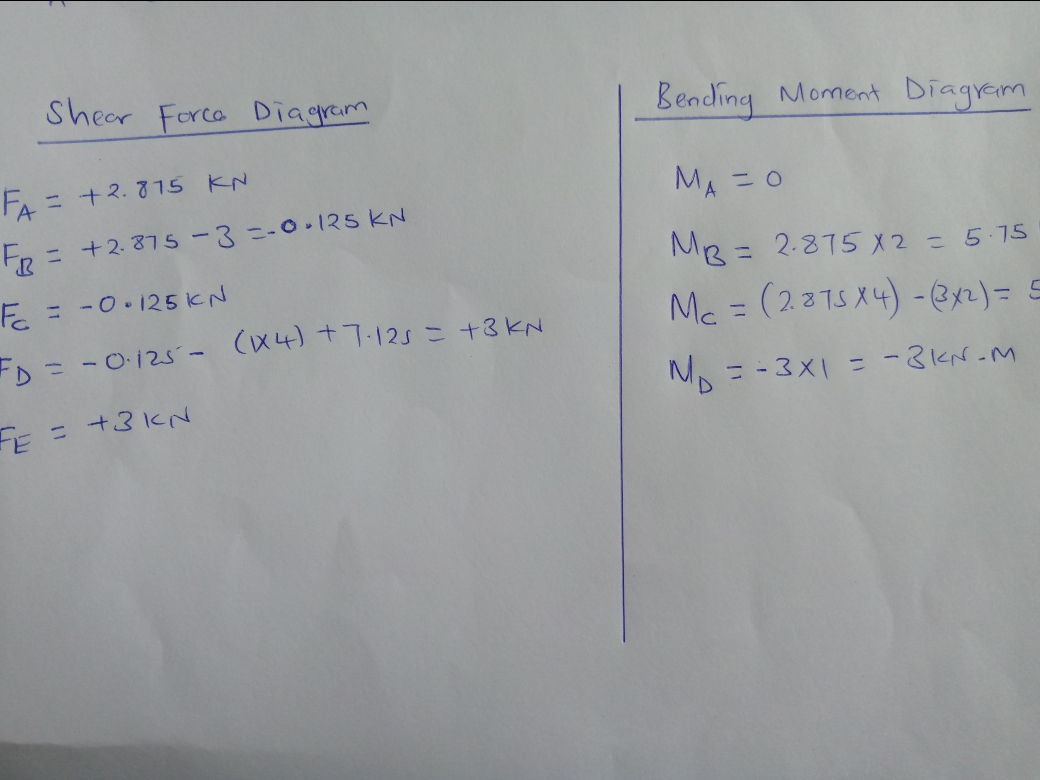 Shear Force Diagram
F_A = +2.875 KN
F_B = +2.875 - 3 = -0.125 KN
F_C = -0.125 KN
F_D = -0.125 - (1X4) + 7.125 = +3 KN
F_E = +3 KN
Bending Moment Diagram
M_A = 0
M_B = 2.875 X 2 = 5.75
M_C = (2.875 X 4) - (3x2) = 5
M_D = -3 X 1 = -3 KN-M